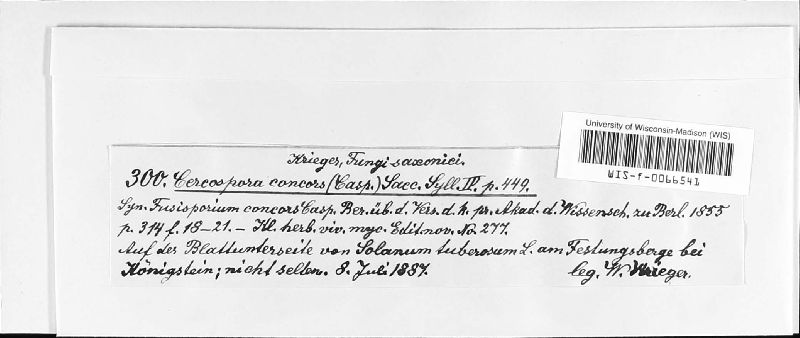 University of Wisconsin-Madison (WIS)
WIS-f-0066541
Krieger, Fungi saxonici.
300. Cercospora concors (Casp.) Sacc. Syll. IV. p. 449.
Syn. Fusisporium concors Casp. Ber. üb. d. Vers. d. k. pr. Akad. d. Wissensch. zu Berl. 1855
p. 314 f. 18-21. – Kl. herb. viv. myc. Edit. nov. No. 277.
Auf der Blattunterseite von Solanum tuberosum L. am Festungsberge bei
Königstein; nicht selten. 8. Juli 1887. leg. W. Krieger.